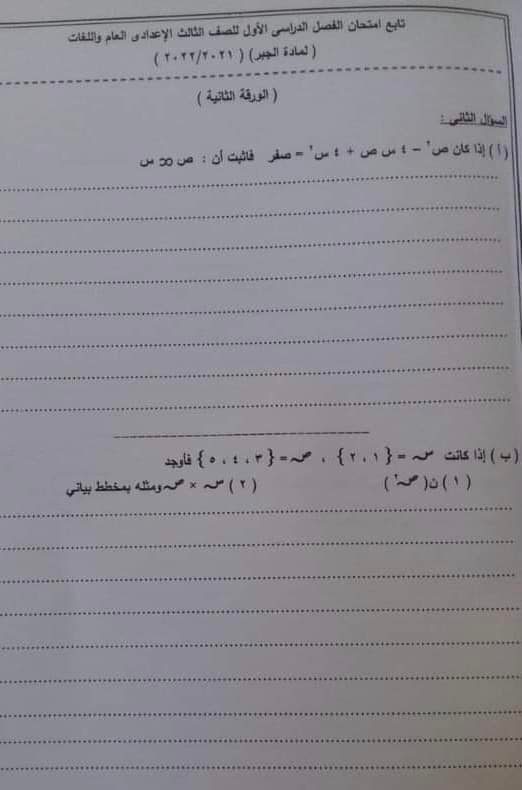 تابع امتحان الفصل الدراسى الأول للصف الثالث الإعدادى العام واللغات
( لمادة الجبر ) ( ٢٠٢١/٢٠٢٢ )
( الورقة الثانية )
السؤال الثاني :
( أ ) إذا كان ص٢ − ٤ س ص + ٤ س٢ = صفر فاثبت أن : ص ∝ س
( ب ) إذا كانت سـ = { ١ ، ٢ } ، صـ = { ٣ ، ٤ ، ٥ } فأوجد
( ١ ) ن ( صـ٢ ) ( ٢ ) سـ × صـ ومثله بمخطط بياني